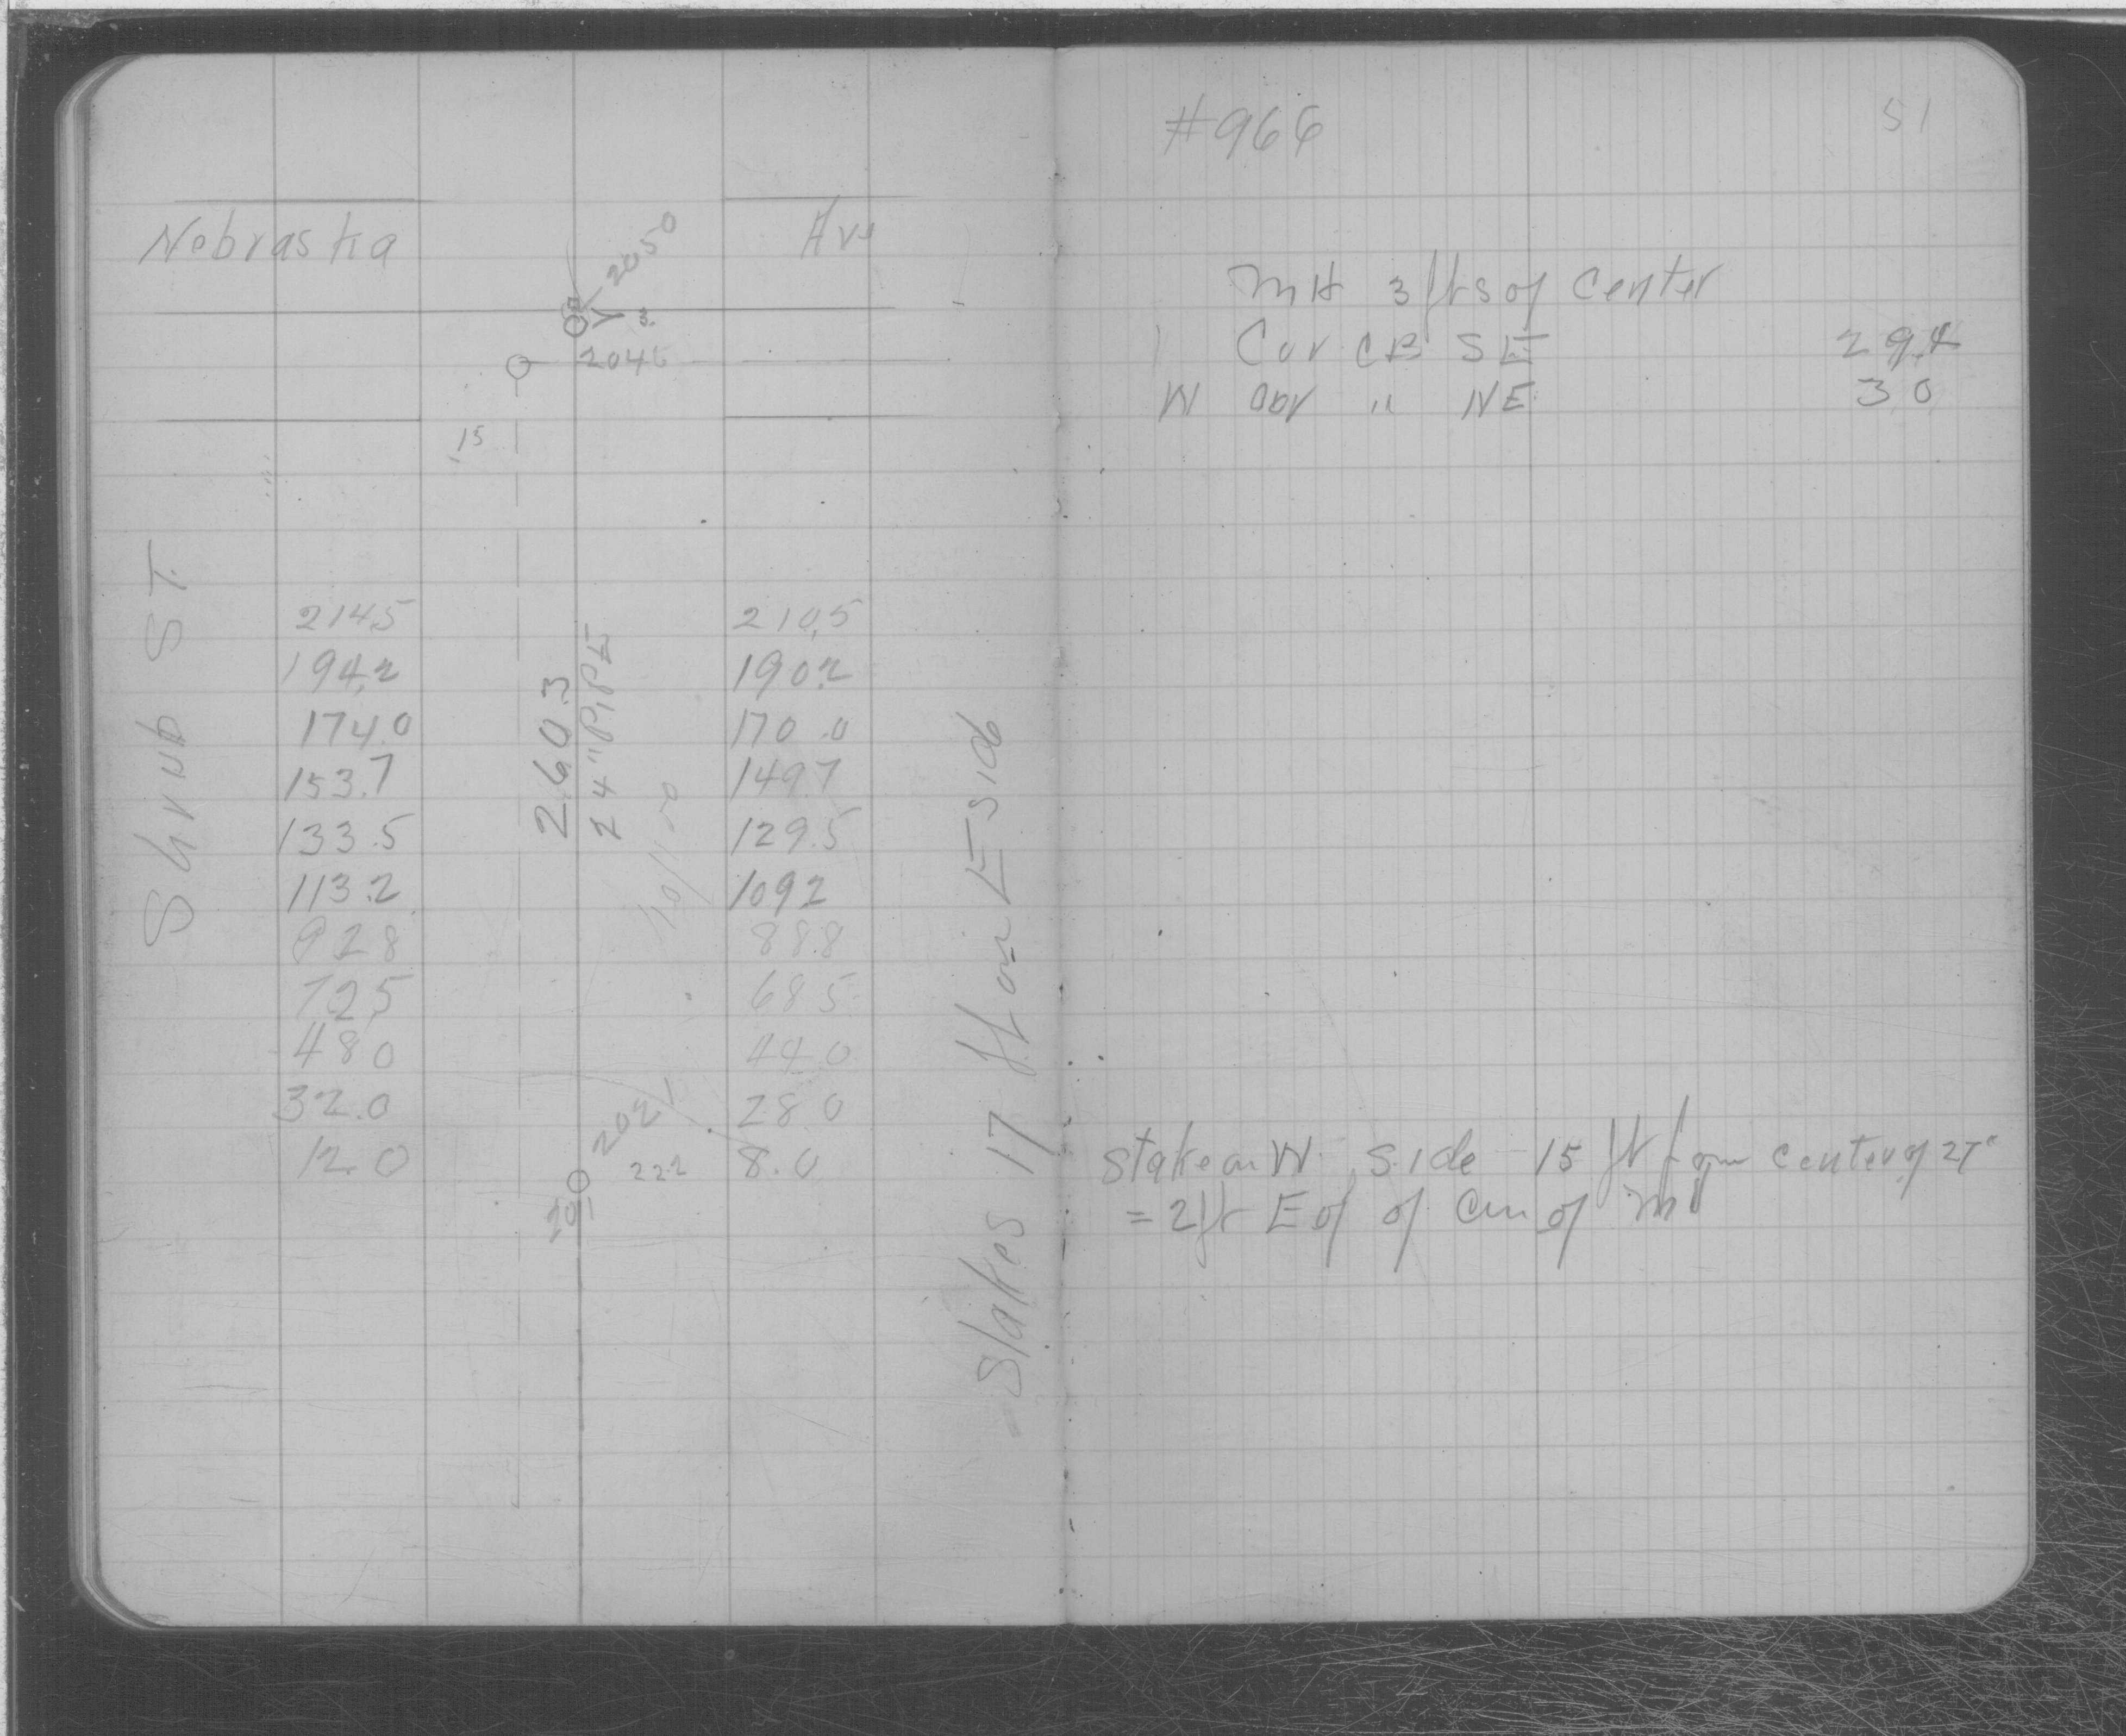 Nebraska Ave
2050
3.
2046
15
Shrub ST.
2145 210,5
194,2 190.2
174.0 170.0
153.7 149.7
133.5 129.5
113.2 1092
928 88.8
725 685
480 44.0
32.0 28.0
12.0 8.0
260.3
24" PIPE
2021
222
201
Stakes 17 ft on E side
#966 51
MH 3 ft S of Center
Cor CB SE 29.8
W Cor " NE 30
Stake on W. Side 15 ft from center of 27"
= 2 ft E of of Cen of M